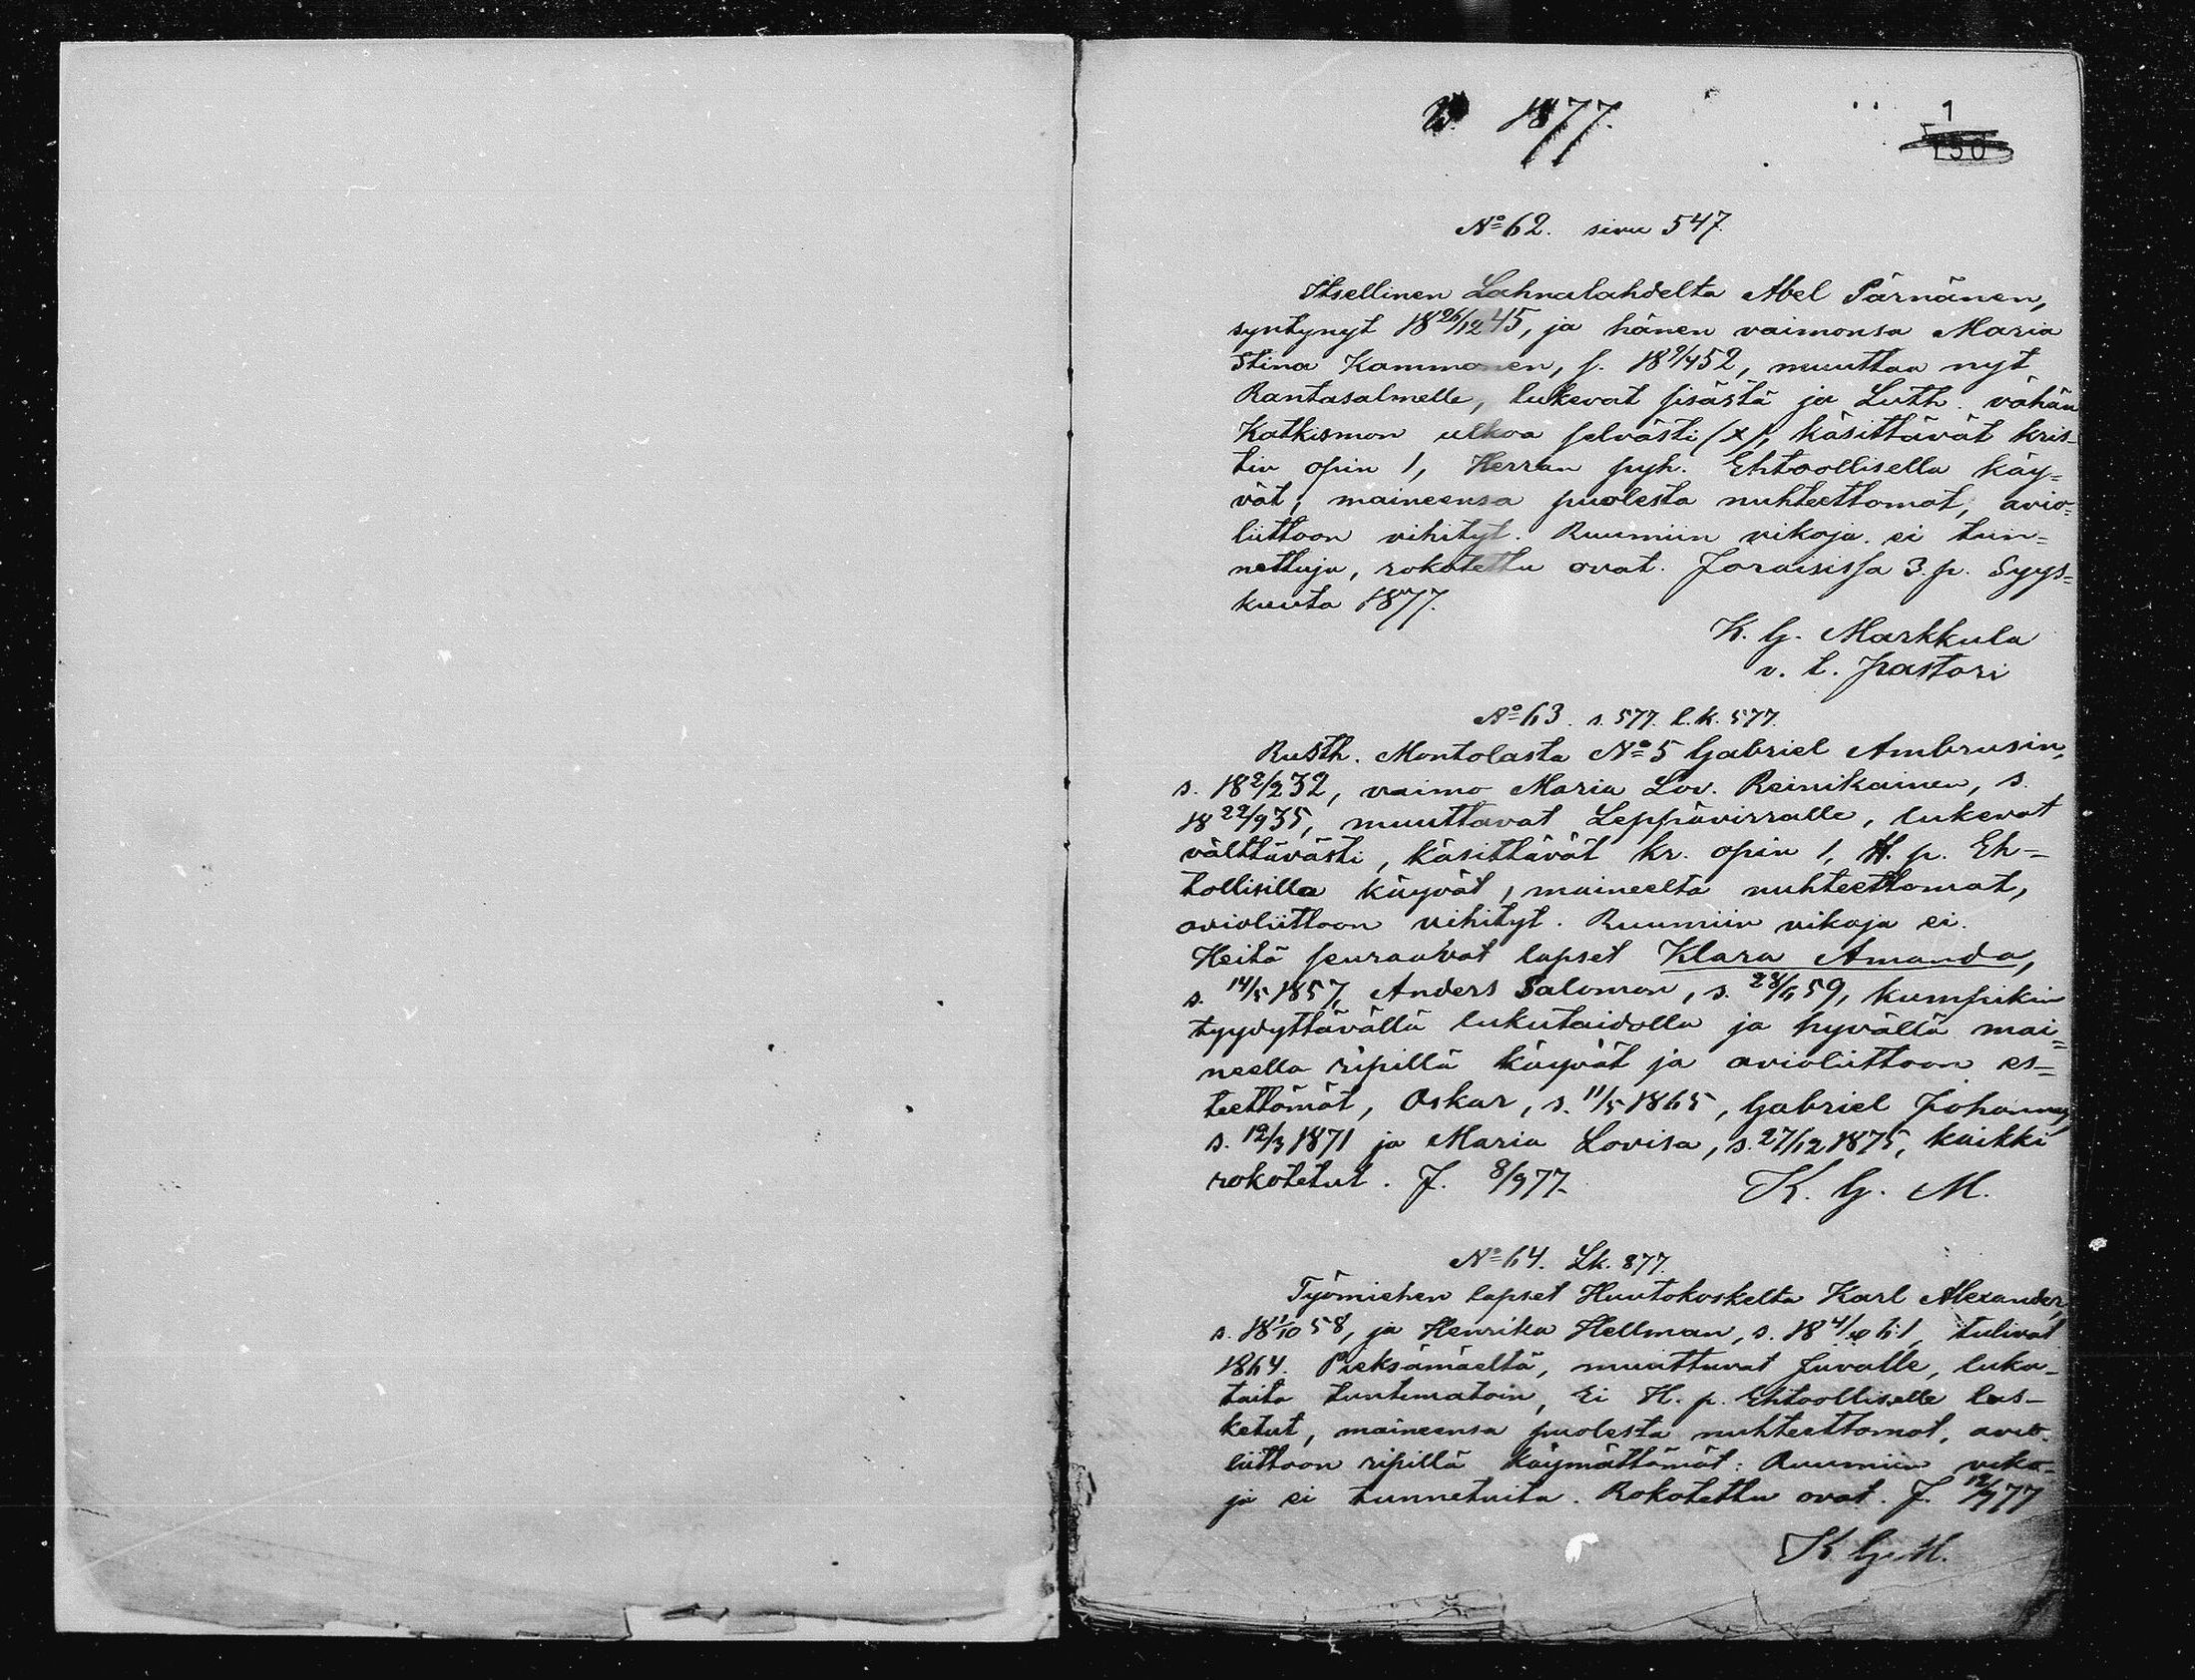 V. 1877.
1
150
No 62. sivu 547.
Itsellinen Lahnalahdelta Abel Pärnänen,
syntynyt 18 26/12 45, ja hänen vaimonsa Maria
Stina Kammonen, s. 18 9/4 52, muuttaa nyt
Rantasalmelle, lukevat sisästä ja Luth. vähän
Katkismon ulkoa selvästi (x), käsittävät kris-
tin opin 1, Herran pyh. Ehtoollisella käy=
vät, maineensa puolesta nuhteettomat, avio=
liittoon vihityt. Ruumiin vikoja ei tun=
nettuja, rokotettu ovat. Joroisissa 3. p. Syys=
kuuta 1877.
K. G. Markkula
v. t. pastori
No 63. s. 577. l.k. 577.
Rusth. Montolasta No 5 Gabriel Ambrusin,
s. 18 2/2 32, vaimo Maria Lov. Reinikainen, s.
18 22/9 35, muuttavat Leppävirralle, lukevat
välttävästi, käsittävät kr. opin 1, H. p. Eh=
tollisilla käyvät, maineelta nuhteettomat,
avioliittoon vihityt. Ruumiin vikoja ei.
Heitä seuraavat lapset Klara Amanda,
s. 14/5 1857, Anders Salomon, s. 28/6 59, kumpikin
tyydyttävällä lukutaidolla ja hyvällä mai=
neella ripillä käyvät ja avioliittoon es=
teettömät, Oskar, s. 11/5 1865, Gabriel Johannes,
s. 12/3 1871 ja Maria Lovisa, s. 27/12 1875, kaikki
rokotetut. J. 8/9 77.
K. G. M.
No 64. Lk. 877.
Työmiehen lapset Huutokoskelta Karl Alexander,
s. 18 1/10 58, ja Henrika Hellman, s. 18 4/10 61, tulivat
1864. Pieksämäeltä, muuttavat Juvalle, luku-
taito tuntematoin, Ei H. p. Ehtoolliselle las-
ketut, maineensa puolesta nuhteettomat, avio-
liittoon ripillä käymättömät: Ruumiin viko-
ja ei tunnetuita. Rokotettu ovat. J. 12/9 77
K. G. M.